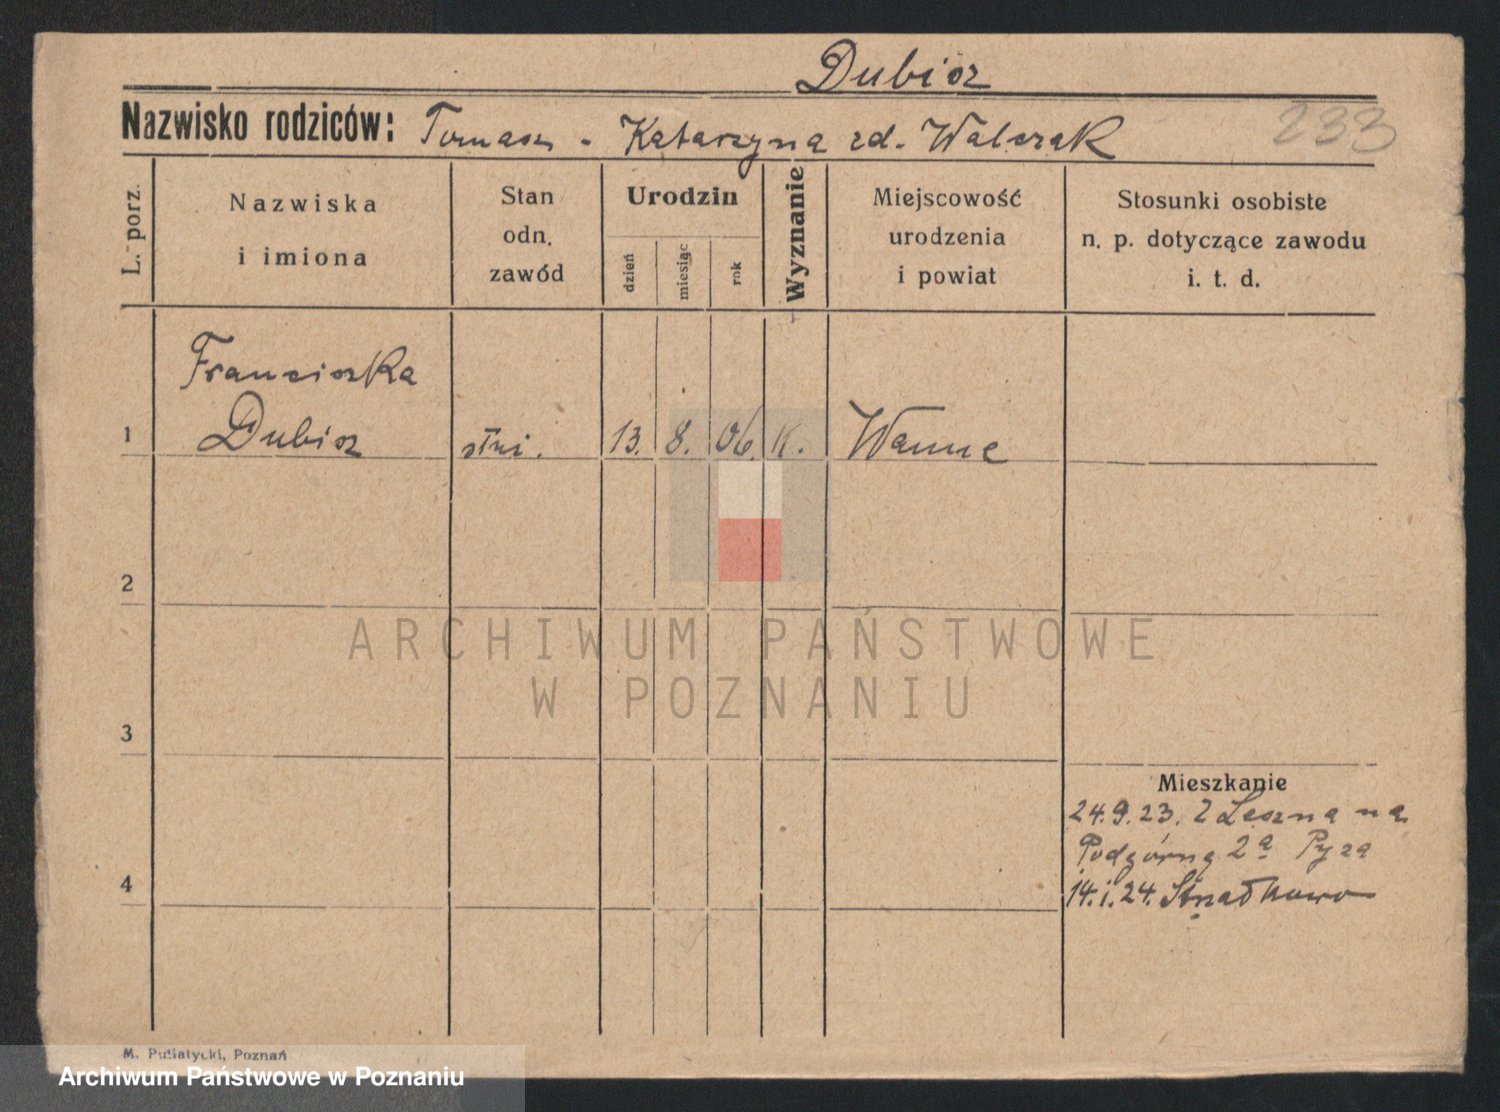 Dubisz
233
Nazwisko rodziców: Tomasz - Katarzyna zd. Walczak
L. porz.
Nazwiska
i imiona
Stan
odn.
zawód
Urodzin
dzień
miesiąc
rok
Wyznanie
Miejscowość
urodzenia
i powiat
Stosunki osobiste
n. p. dotyczące zawodu
i. t. d.
Franciszka
1 Dubisz 13. 8. 06. K. Wanne
2
ARCHIWUM PAŃSTWOWE
W POZNANIU
3
Mieszkanie
24.9.23. z Leszna na
Podgórną 2a
4 14.i.24.
M. Putiatycki, Poznań
Archiwum Państwowe w Poznaniu